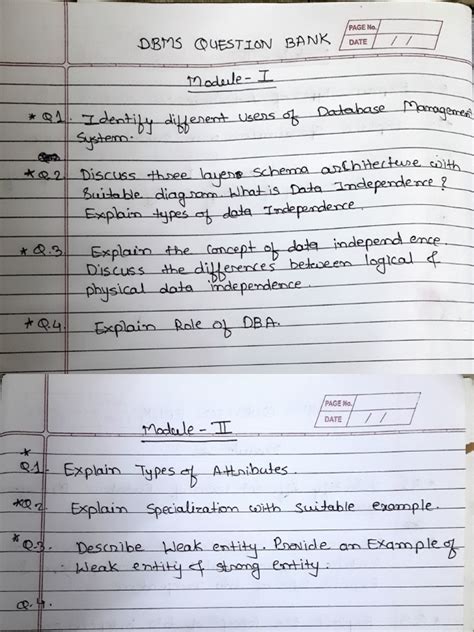 PAGE No.
DATE / /
DBMS QUESTION BANK
Module - I
* Q1. Identify different users of Database Management
System.
* Q.2 Discuss three layers schema architecture with
Suitable diagram. What is Data Independence?
Explain types of data Independence.
* Q.3 Explain the concept of data independence.
Discuss the differences between logical &
physical data independence.
* Q.4. Explain Role of DBA.
PAGE No.
DATE / /
Module - II
*
Q.1 Explain Types of Attributes.
* Q.2 Explain Specialization with suitable example.
* Q.3. Describe Weak entity. Provide an Example of
Weak entity & strong entity.
Q.4.